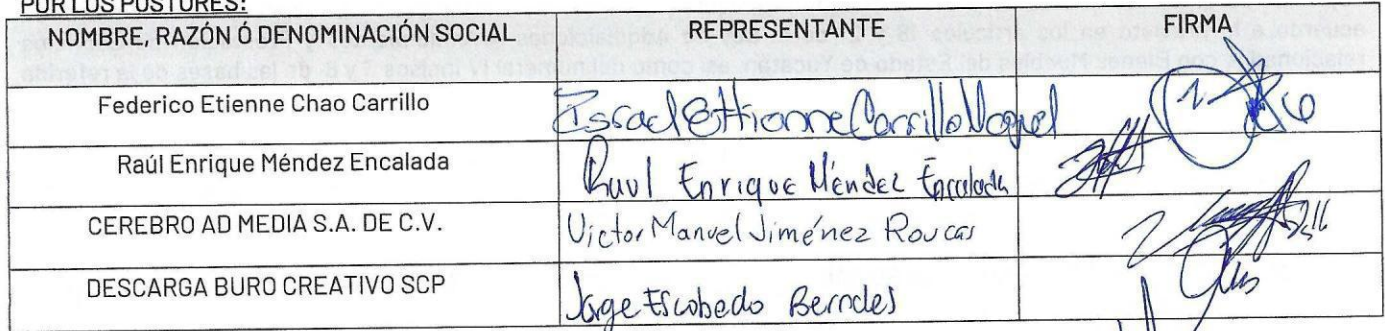 POR LOS POSTORES:
NOMBRE, RAZÓN Ó DENOMINACIÓN SOCIAL REPRESENTANTE FIRMA
Federico Etienne Chao Carrillo Israel Ettienne Carrillo
Raúl Enrique Méndez Encalada Raul Enrique Méndez Encalada
CEREBRO AD MEDIA S.A. DE C.V. Victor Manuel Jiménez
DESCARGA BURO CREATIVO SCP Jorge Escobedo